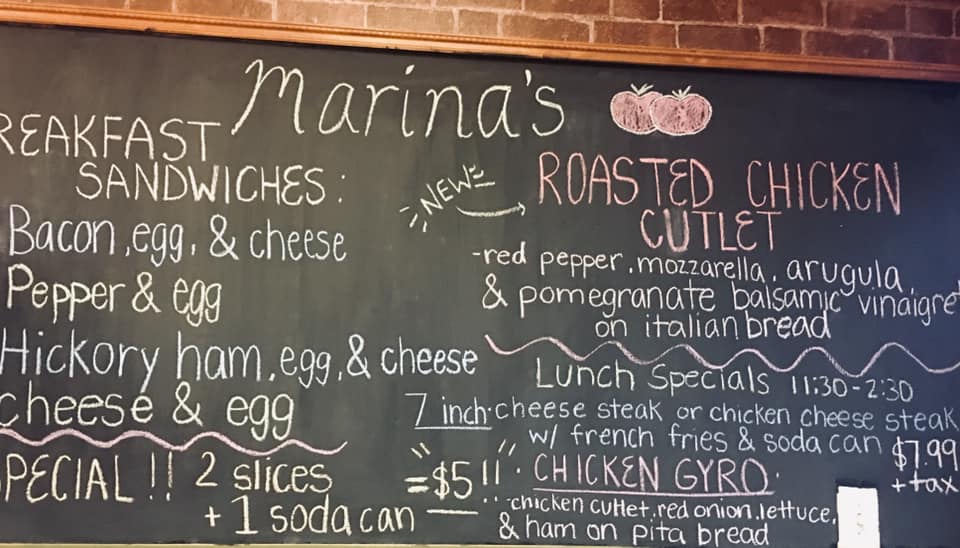 Marina's
REAKFAST
SANDWICHES:
Bacon, egg, & cheese
Pepper & egg
Hickory ham, egg, & cheese
cheese & egg
PECIAL!! 2 slices
+ 1 soda can
=$5!!
NEW!
ROASTED CHICKEN
CUTLET
-red pepper, mozzarella, arugula,
& pomegranate balsamic vinaigret
on italian bread
Lunch Specials 11:30-2:30
7 inch cheese steak or chicken cheese steak
w/ french fries & soda can $7.99
+tax
CHICKEN GYRO
-chicken cutlet, red onion, lettuce,
& ham on pita bread